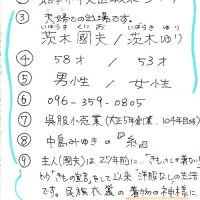 ③ 夫婦での出場です。
いばらき くにお いばらき ゆり
茨木 國夫 / 茨木 ゆり
④ 58才 / 53才
⑤ 男性 / 女性
⑥ 096-359-0805
⑦ 呉服小売業 (大正5年創業、10今年目
⑧ 中島みゆきの "糸"
⑨ 主人(國夫)は27年前に "きものしか着ない
"きもの宣言"をして以来 洋服なしの生活
です。民族衣裳の着物の神様に